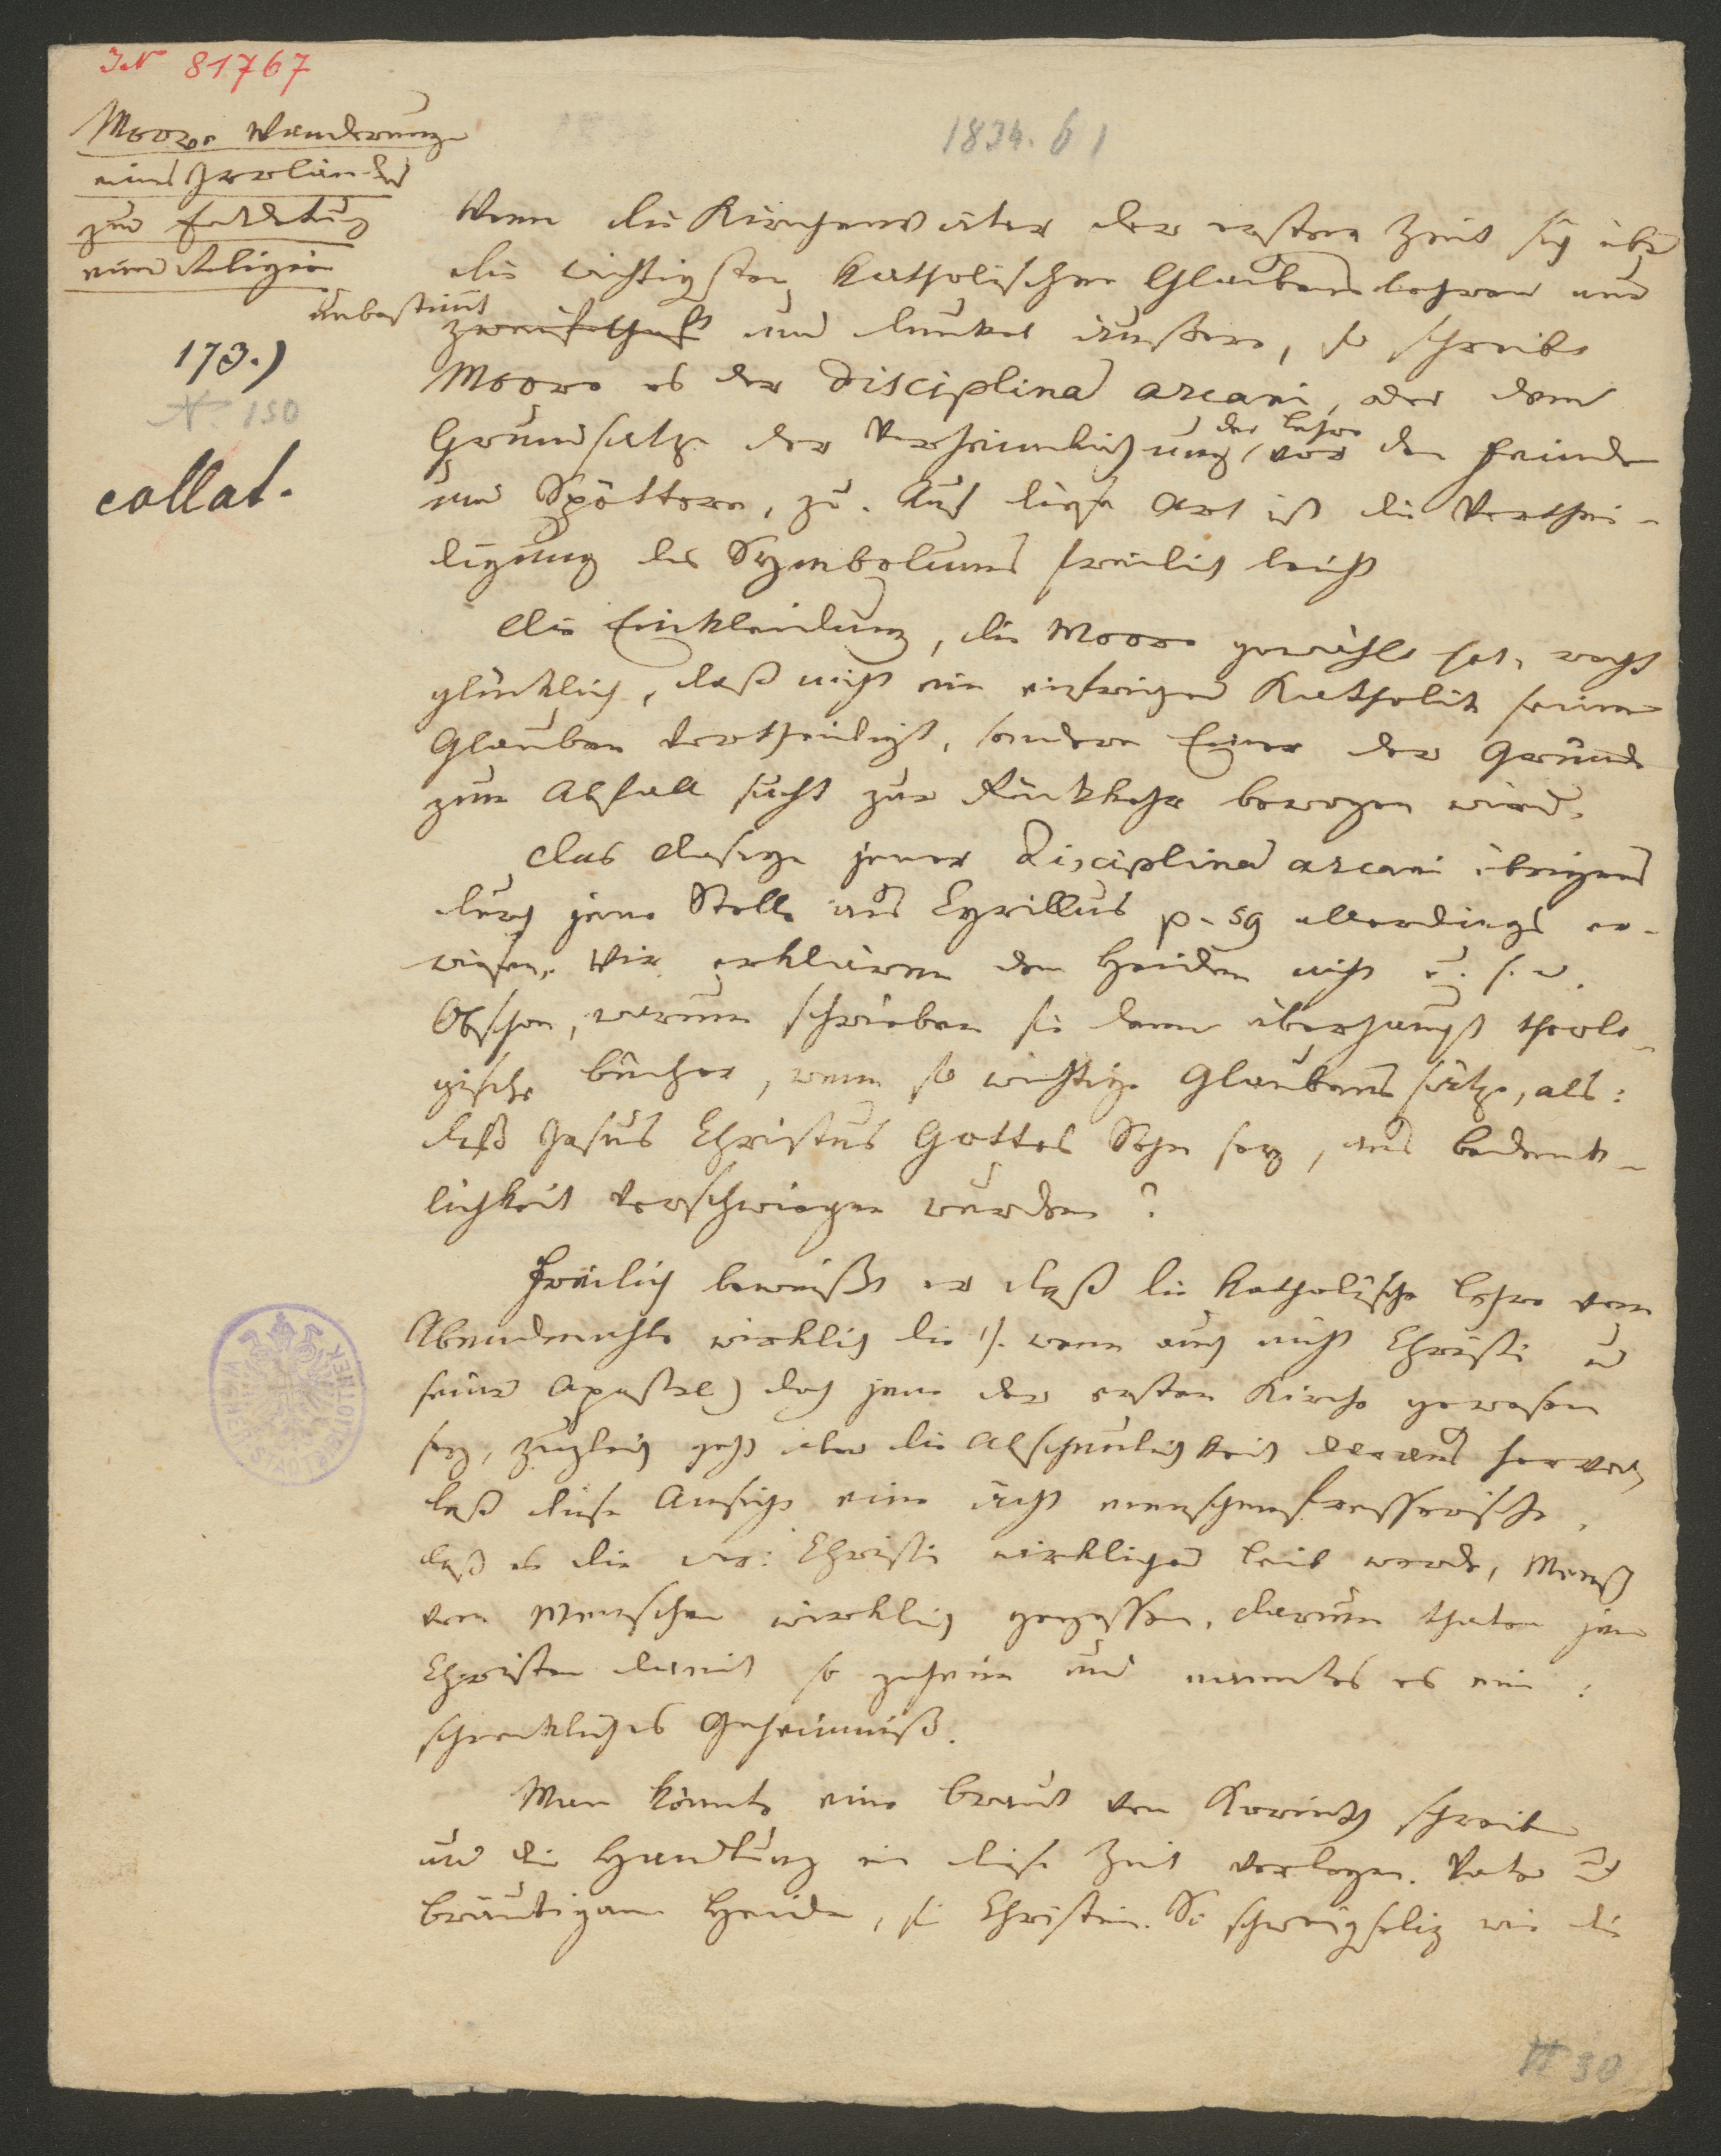 JN 81767
1834. 61
Moore Wanderung
eines Irrländers
zur Entdekung
einer Religion
173.)
N 150
collat.
Wenn die Kirchenväter der ersten Zeit sich über
die wichtigsten katholischen Glaubenslehren nur
unbestimt
zweifelhaft und dunkel äußern, so schreibt
Moore es der disciplina arcani, oder dem
der Lehre
Grundsatze der Verheimlichung, vor den Feinden
und Spöttern, zu. Auf diese Art ist die Verthei-
digung des Symbolums freilich leicht
Die Einkleidung, die Moore gewählt hat, recht
glücklich, daß nicht ein eifriger Katholik seinen
Glauben vertheidigt, sondern Einer der Gründe
zum Abfall sucht zur Rückkehr bewogen wird.
Das Daseyn jener disciplina arcani übrigens
durch jene Stelle aus Cyrillus p. 59 allerdings er-
wiesen. Wir erklären den Heiden nicht u. s. w.
Obschon, warum schrieben sie denn überhaupt theolo-
gische Bücher, wenn so wichtige Glaubenssätze, als:
daß Jesus Christus Gottes Sohn sey, aus Bedenk-
lichkeit verschwiegen wurden?
Freilich beweißt er daß die katholische Lehre vom
Abendmahle wirklich die /: wenn auch nicht Christi u
seiner Apostel) doch jene der ersten Kirche gewesen
sey, zugleich geht aber die Abscheulichkeit daraus hervor,
daß diese Ansicht eine ächt menschenfresserische,
daß es die Christi wirklicher Leib werde, Mensch
von Menschen wirklich gegessen, darum thaten jene
Christen damit so geheim und nannten es ein:
schreckliches Geheimniß.
Man könnte eine Braut von Korinth schreiben
und die Handlung in diese Zeit verlegen. Vater und
Bräutigam Heiden, sie Christin. So schweigselig wie die
WIENER STADTBIBLIOTHEK
30